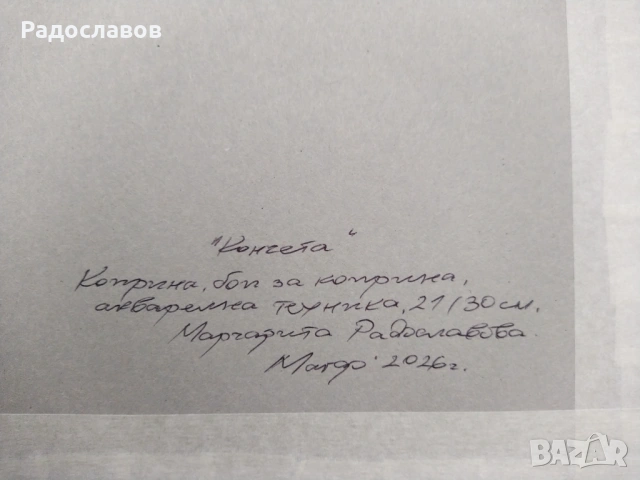 Радославов
"Кончета"
Коприна, бои за коприна,
акварелна техника, 21/30 см.
Маргарита Радославова.
Март 2026 г.
BAZAR